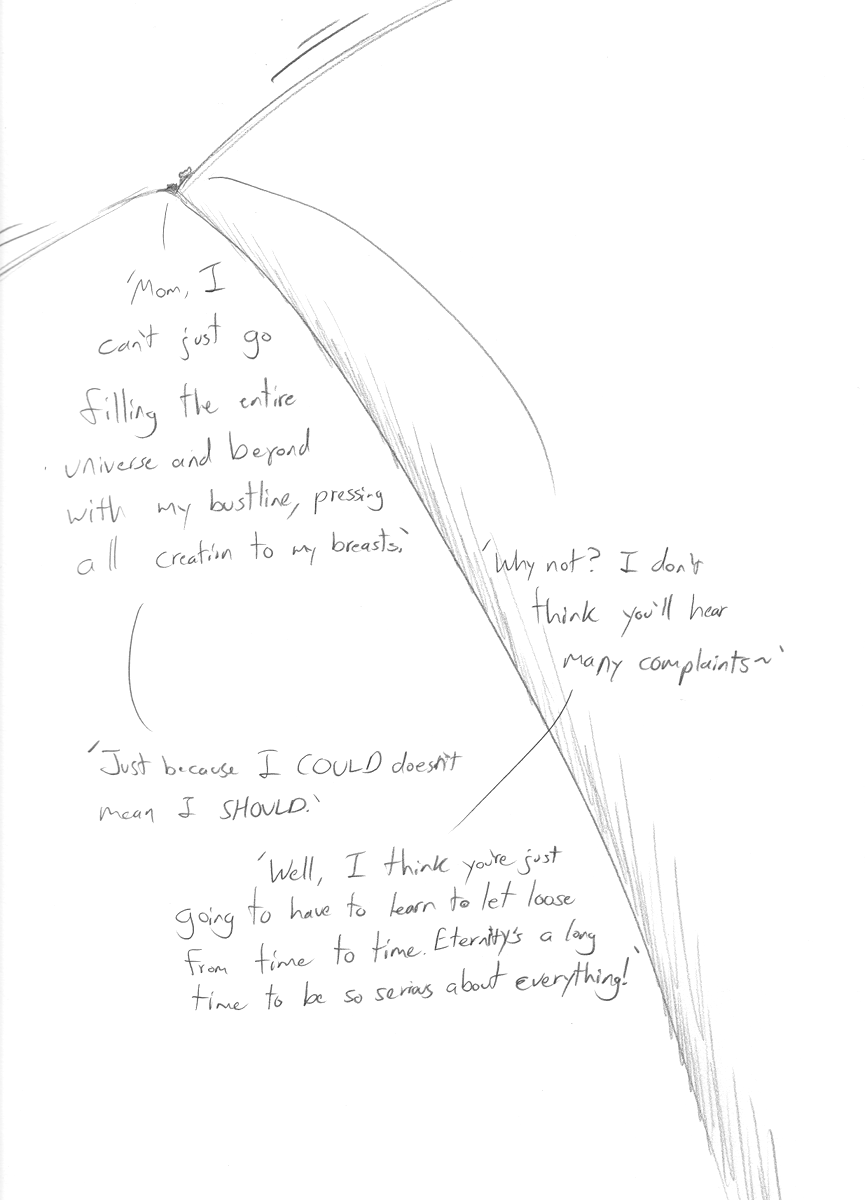 'Mom, I
can't just go
filling the entire
universe and beyond
with my bustline, pressing
all creation to my breasts.'
'Why not? I don't
think you'll hear
many complaints~'
'Just because I COULD doesn't
mean I SHOULD.'
'Well, I think you're just
going to have to learn to let loose
from time to time. Eternity's a long
time to be so serious about everything!'